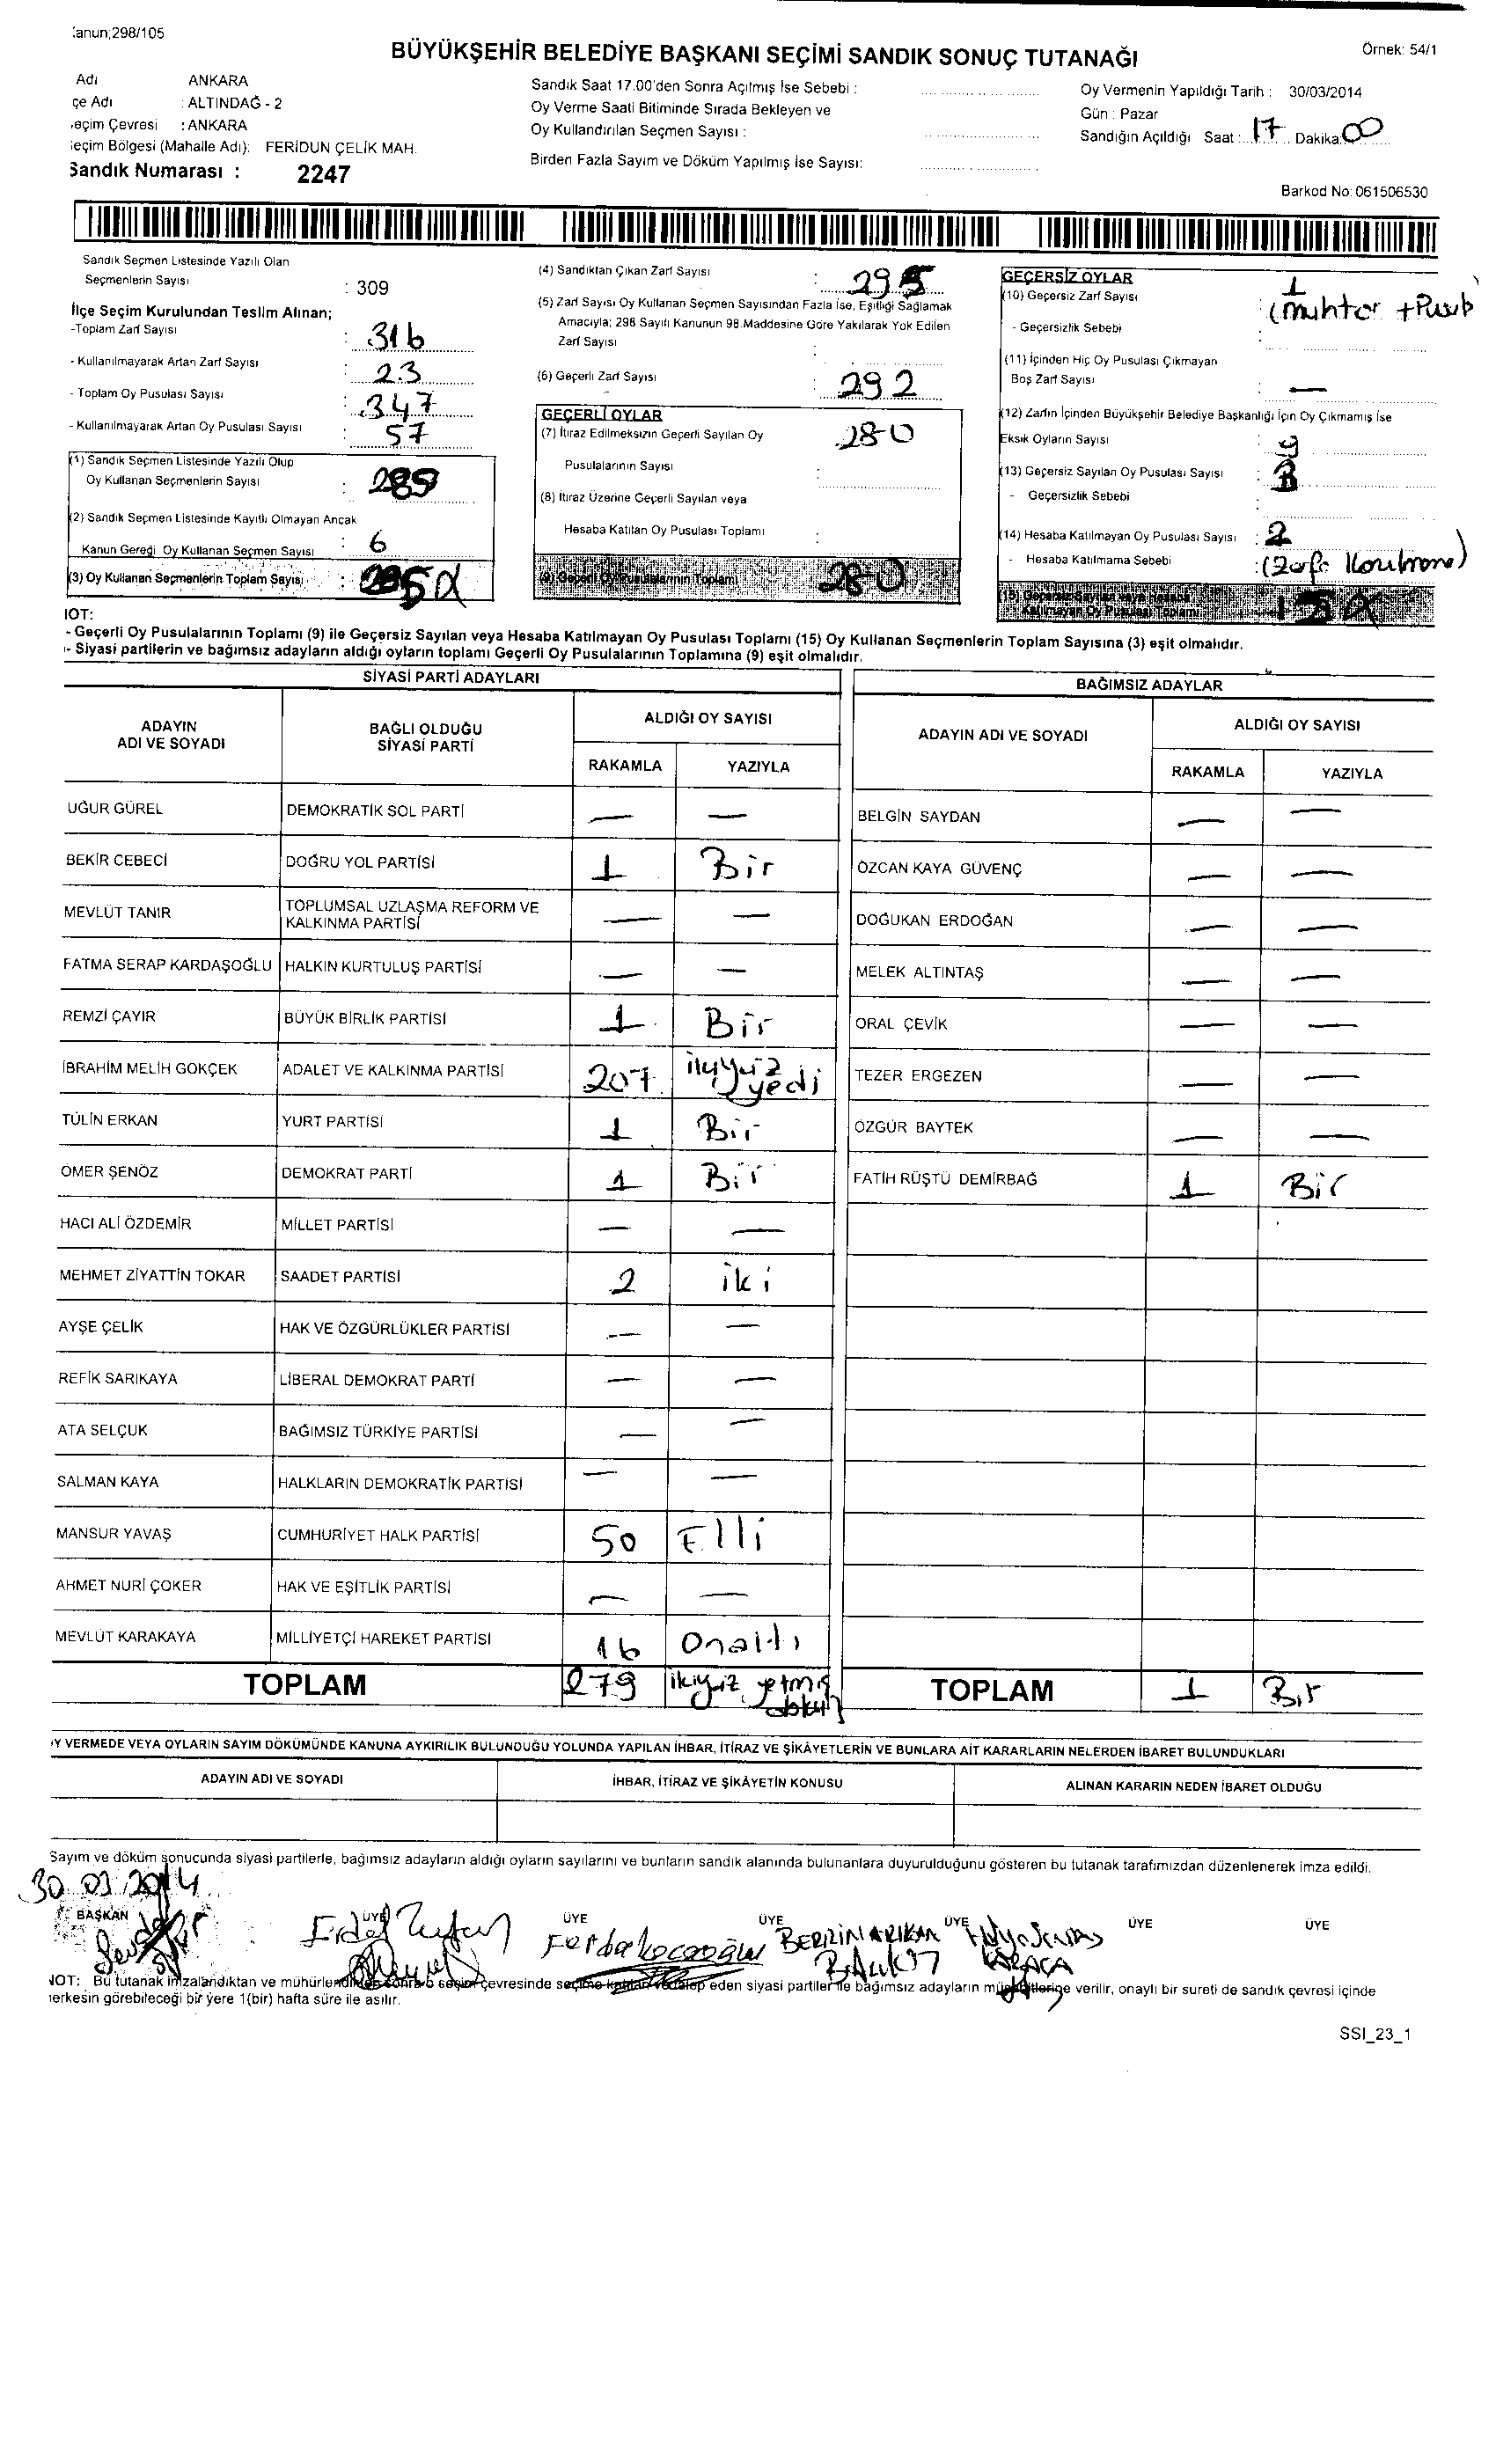 :anun;298/105
BÜYÜKŞEHİR BELEDİYE BAŞKANI SEÇİMİ SANDIK SONUÇ TUTANAĞI
Örnek: 54/1
Adı ANKARA
çe Adı : ALTINDAĞ - 2
eçim Çevresi : ANKARA
eçim Bölgesi (Mahalle Adı): FERİDUN ÇELİK MAH.
Sandık Numarası : 2247
Sandık Saat 17.00'den Sonra Açılmış İse Sebebi :
Oy Verme Saati Bitiminde Sırada Bekleyen ve
Oy Kullandırılan Seçmen Sayısı :
Birden Fazla Sayım ve Döküm Yapılmış İse Sayısı:
Oy Vermenin Yapıldığı Tarih : 30/03/2014
Gün : Pazar
Sandığın Açıldığı Saat : 17 Dakika: 00
Barkod No: 061506530
Sandık Seçmen Listesinde Yazılı Olan
Seçmenlerin Sayısı : 309
İlçe Seçim Kurulundan Teslim Alınan;
-Toplam Zarf Sayısı : 316
- Kullanılmayarak Artan Zarf Sayısı : 23
- Toplam Oy Pusulası Sayısı : 347
- Kullanılmayarak Artan Oy Pusulası Sayısı : 57
(1) Sandık Seçmen Listesinde Yazılı Olup
Oy Kullanan Seçmenlerin Sayısı : 289
(2) Sandık Seçmen Listesinde Kayıtlı Olmayan Ancak
Kanun Gereği Oy Kullanan Seçmen Sayısı : 6
(3) Oy Kullanan Seçmenlerin Toplam Sayısı : 295
(4) Sandıktan Çıkan Zarf Sayısı : 295
(5) Zarf Sayısı Oy Kullanan Seçmen Sayısından Fazla İse, Eşitliği Sağlamak
Amacıyla; 298 Sayılı Kanunun 98.Maddesine Göre Yakılarak Yok Edilen
Zarf Sayısı :
(6) Geçerli Zarf Sayısı : 292
GEÇERLİ OYLAR
(7) İtiraz Edilmeksizin Geçerli Sayılan Oy 280
Pusulalarının Sayısı :
(8) İtiraz Üzerine Geçerli Sayılan veya
Hesaba Katılan Oy Pusulası Toplamı :
(9) Geçerli Oy Pusulalarının Toplamı 280
GEÇERSİZ OYLAR
(10) Geçersiz Zarf Sayısı : 1
- Geçersizlik Sebebi : (muhtar +
(11) İçinden Hiç Oy Pusulası Çıkmayan
Boş Zarf Sayısı : —
(12) Zarfın İçinden Büyükşehir Belediye Başkanlığı İçin Oy Çıkmamış İse
Eksik Oyların Sayısı : 9
(13) Geçersiz Sayılan Oy Pusulası Sayısı :
- Geçersizlik Sebebi
(14) Hesaba Katılmayan Oy Pusulası Sayısı : 2
- Hesaba Katılmama Sebebi :
(15) Geçersiz Sayılan veya Hesaba
Katılmayan Oy Pusulası Toplamı 15
NOT:
- Geçerli Oy Pusulalarının Toplamı (9) ile Geçersiz Sayılan veya Hesaba Katılmayan Oy Pusulası Toplamı (15) Oy Kullanan Seçmenlerin Toplam Sayısına (3) eşit olmalıdır.
- Siyasi partilerin ve bağımsız adayların aldığı oyların toplamı Geçerli Oy Pusulalarının Toplamına (9) eşit olmalıdır.
SİYASİ PARTİ ADAYLARI BAĞIMSIZ ADAYLAR
ADAYIN ADI VE SOYADI BAĞLI OLDUĞU SİYASİ PARTİ ALDIĞI OY SAYISI ADAYIN ADI VE SOYADI ALDIĞI OY SAYISI
RAKAMLA YAZIYLA RAKAMLA YAZIYLA
UĞUR GÜREL DEMOKRATİK SOL PARTİ — — BELGİN SAYDAN — —
BEKİR CEBECİ DOĞRU YOL PARTİSİ 1 Bir ÖZCAN KAYA GÜVENÇ — —
MEVLÜT TANIR TOPLUMSAL UZLAŞMA REFORM VE KALKINMA PARTİSİ — — DOĞUKAN ERDOĞAN — —
FATMA SERAP KARDAŞOĞLU HALKIN KURTULUŞ PARTİSİ — — MELEK ALTINTAŞ — —
REMZİ ÇAYIR BÜYÜK BİRLİK PARTİSİ 1 Bir ORAL ÇEVİK — —
İBRAHİM MELİH GÖKÇEK ADALET VE KALKINMA PARTİSİ 207 ikiyüz yedi TEZER ERGEZEN — —
TÜLİN ERKAN YURT PARTİSİ 1 Bir ÖZGÜR BAYTEK — —
ÖMER ŞENÖZ DEMOKRAT PARTİ 1 Bir FATİH RÜŞTÜ DEMİRBAĞ 1 Bir
HACI ALİ ÖZDEMİR MİLLET PARTİSİ — —
MEHMET ZİYATTİN TOKAR SAADET PARTİSİ 2 iki
AYŞE ÇELİK HAK VE ÖZGÜRLÜKLER PARTİSİ — —
REFİK SARIKAYA LİBERAL DEMOKRAT PARTİ — —
ATA SELÇUK BAĞIMSIZ TÜRKİYE PARTİSİ — —
SALMAN KAYA HALKLARIN DEMOKRATİK PARTİSİ — —
MANSUR YAVAŞ CUMHURİYET HALK PARTİSİ 50 Elli
AHMET NURİ ÇOKER HAK VE EŞİTLİK PARTİSİ — —
MEVLÜT KARAKAYA MİLLİYETÇİ HAREKET PARTİSİ 16 Onaltı
TOPLAM 279 ikiyüz yetmiş dokuz TOPLAM 1 Bir
Y VERMEDE VEYA OYLARIN SAYIM DÖKÜMÜNDE KANUNA AYKIRILIK BULUNDUĞU YOLUNDA YAPILAN İHBAR, İTİRAZ VE ŞİKÂYETLERİN VE BUNLARA AİT KARARLARIN NELERDEN İBARET BULUNDUKLARI
ADAYIN ADI VE SOYADI İHBAR, İTİRAZ VE ŞİKÂYETİN KONUSU ALINAN KARARIN NEDEN İBARET OLDUĞU
Sayım ve döküm sonucunda siyasi partilerle, bağımsız adayların aldığı oyların sayılarını ve bunların sandık alanında bulunanlara duyurulduğunu gösteren bu tutanak tarafımızdan düzenlenerek imza edildi.
30.03.2014
BAŞKAN ÜYE ÜYE ÜYE ÜYE ÜYE ÜYE
NOT: Bu tutanak imzalandıktan ve mühürlendikten sonra o seçim çevresinde seçime katılan ve talep eden siyasi partiler ile bağımsız adayların müşahitlerine verilir, onaylı bir sureti de sandık çevresi içinde
herkesin görebileceği bir yere 1(bir) hafta süre ile asılır.
SSI_23_1